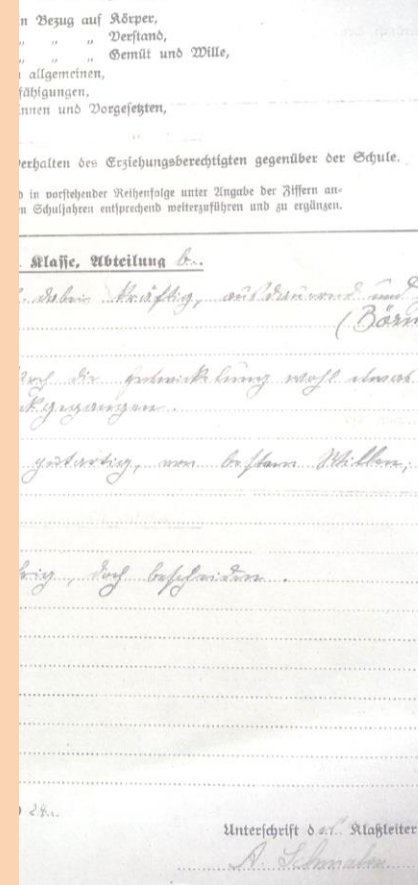 n Bezug auf Körper,
„ „ „ Verstand,
„ „ „ Gemüt und Wille,
allgemeinen,
fähigungen,
innen und Vorgesetzten,
verhalten des Erziehungsberechtigten gegenüber der Schule.
d in vorstehender Reihenfolge unter Angabe der Ziffern an-
n Schuljahren entsprechend weiterzuführen und zu ergänzen.
Klasse, Abteilung b.
dabei kräftig, ausdauernd und
(Börn
durch die Entwickelung wohl etwas
kgegangen.
gutartig, von bestem Willen,
rig, doch bescheiden.
24.
Unterschrift d es Klaßleiter
A.